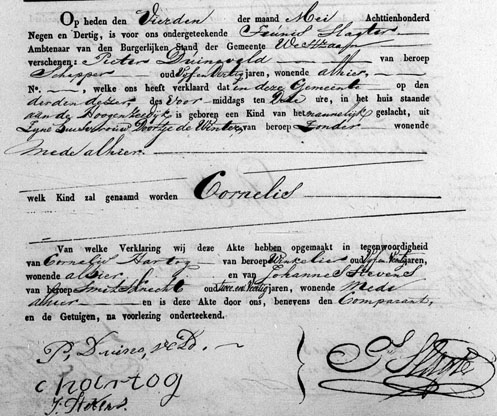 Op heden den Vierden der maand Mei Achttienhonderd
Negen en Dertig, is voor ons ondergeteekende Teunis Slagter
Ambtenaar van den Burgerlijken Stand der Gemeente Westzaan
verschenen: Pieter Duinevold van beroep
Schipper oud Vijf en Veertig jaren, wonende alhier,
No. —, welke ons heeft verklaard dat in deze Gemeente op den
derden dezer des Voor middags ten ure, in het huis staande
aan de Hoogendijk is geboren een Kind van het mannelijk geslacht, uit
Zijne Huisvrouw Doortje de Winter, van beroep Zonder wonende
Mede alhier.
welk Kind zal genaamd worden Cornelis
Van welke Verklaring wij deze Akte hebben opgemaakt in tegenwoordigheid
van Cornelis Hartog van beroep Winkelier oud Vijf en jaren,
wonende alhier en van Johannes Stevens
van beroep Smitsknecht oud Twee en Veertig jaren, wonende Mede
alhier — en is deze Akte door ons, benevens den Comparant,
en de Getuigen, na voorlezing onderteekend.
P,
c hartog
J.